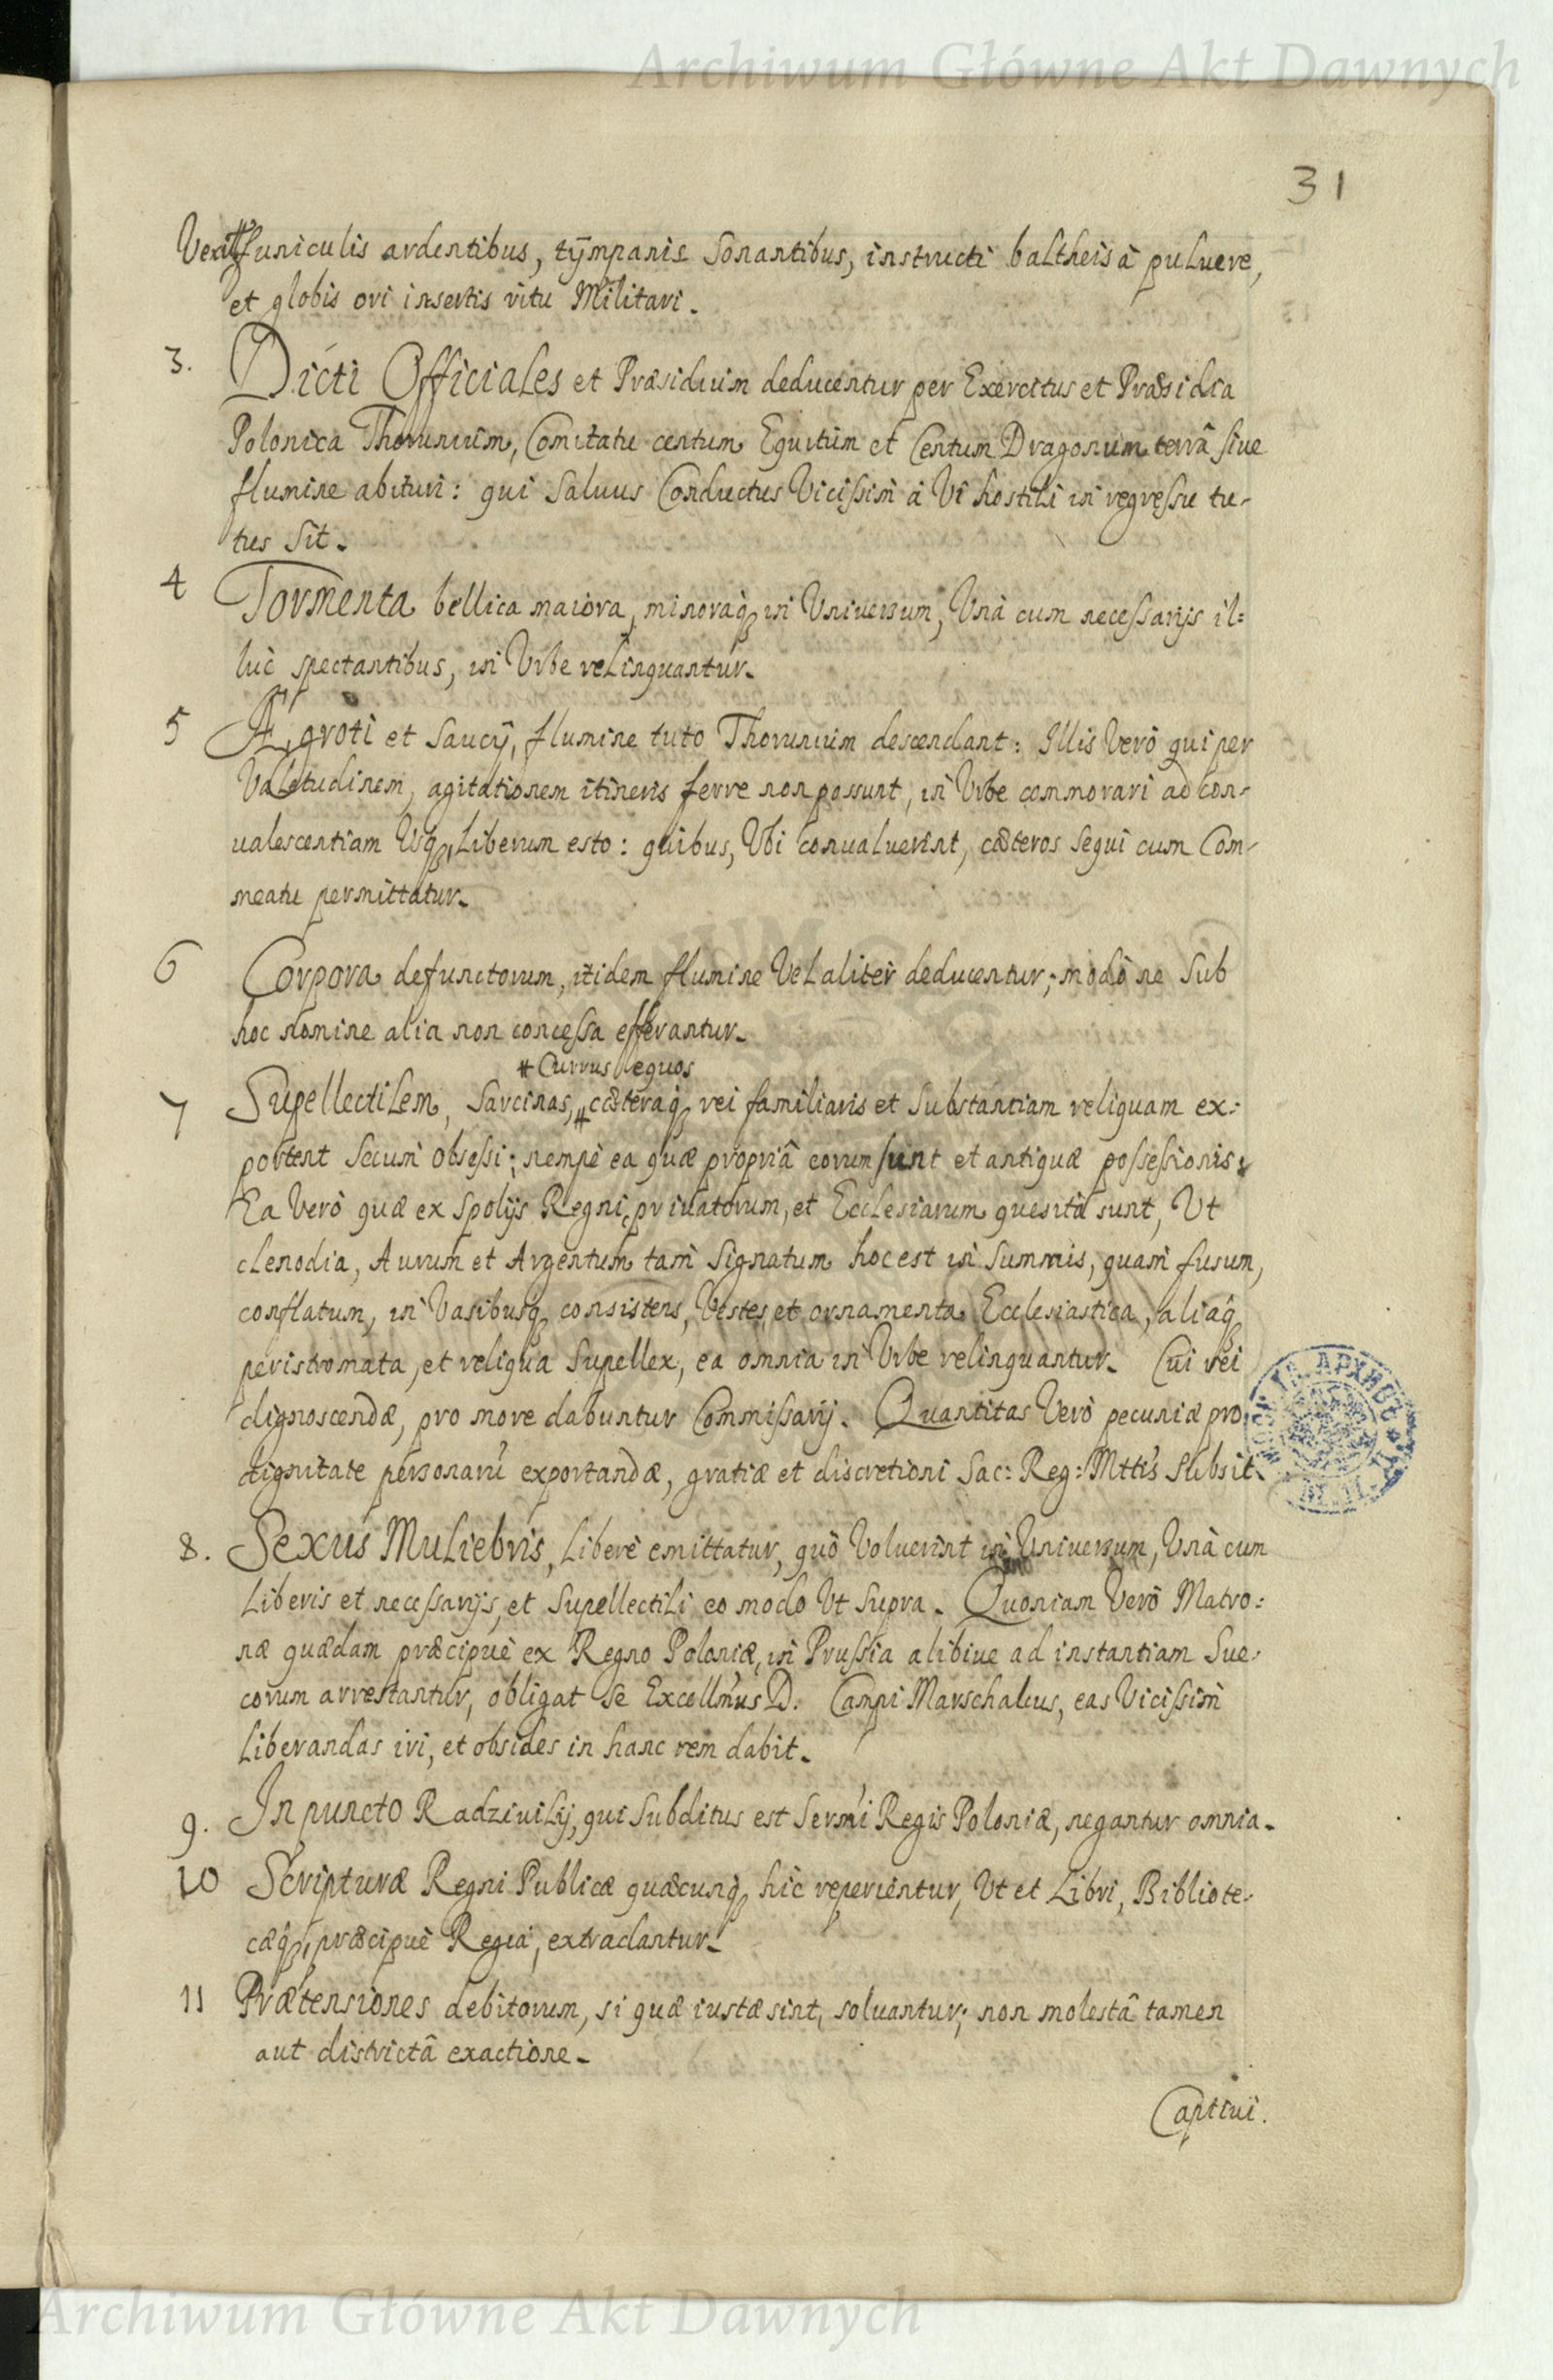 Archiwum Główne Akt Dawnych
31
funiculis ardentibus, tÿmpanis sonantibus, instructi baltheis à puluere,
et globis ori insertis ritu Militari.
3. Dicti Officiales et Præsidium deducentur per Exercitus et Præsidia
Polonica Thorunium, Comitatu centum Equitum et Centum Dragonum terrâ siue
flumine abituri: qui saluus Conductus Vicissim à Vi hostili in regressu tu-
tus sit.
4 Tormenta bellica maiora, minoraq, in Vniuersum, Vnà cum necessarijs il=
luc spectantibus, in Vrbe relinquantur.
5 Ægroti et saucÿ, flumine tuto Thorunium descendant: Illis Verò qui per
Valetudinem, agitationem itineris ferre non possunt, in Vrbe commorari ad con-
ualescentiam Vsq, liberum esto: quibus, Vbi conualuerint, cæteros sequi cum Com-
meatu permittatur.
6 Corpora defunctorum, itidem flumine Vel aliter deducentur; modò ne sub
hoc nomine alia non concessa efferantur.
# Currus equos
7 Supellectilem, sarcinas, # cæteraq, rei familiaris et substantiam reliquam ex:
portent secum obsessi; nempè ea quæ propriâ eorum sunt et antiquæ possessionis.
Ea Verò quæ ex spolijs Regni, priuatorum, et Ecclesiarum quesita sunt, Vt
clenodia, Aurum et Argentum tam signatum hoc est in summis, quam fusum,
conflatum, in Vasibusq, consistens, Vestes et ornamenta Ecclesiastica, aliaq,
peristromata, et reliqua supellex, ea omnia in Vrbe relinquantur. Cui rei
dignoscendæ, pro more dabuntur Commissarij. Quantitas Verò pecuniæ pro
dignitate personarū exportandæ, gratiæ et discretioni Sac: Reg: Mttis subsit.
8. Sexus Muliebris, liberè emittatur, quò Voluerint in Vniuersum, Vnà cum
liberis et necessarijs, et supellectili eo modo Vt supra. Quoniam Verò Matro:
næ quædam præcipuè ex Regno Poloniæ, in Prussia alibiue ad instantiam Sue:
corum arrestantur, obligat se Excellmus D. Campi Marschalcus, eas Vicissim
liberandas iri, et obsides in hanc rem dabit.
9. In puncto Radziuilij, qui subditus est Sermi Regis Poloniæ, negantur omnia.
10 Scripturæ Regni Publicæ quæcunq, hic reperientur, Vt et Libri, Bibliote-
cæq, præcipuè Regia, extradantur.
11 Prætensiones debitorum, si quæ iustæ sint, soluantur; non molestâ tamen
aut districtâ exactione.
Captiui.
Archiwum Główne Akt Dawnych